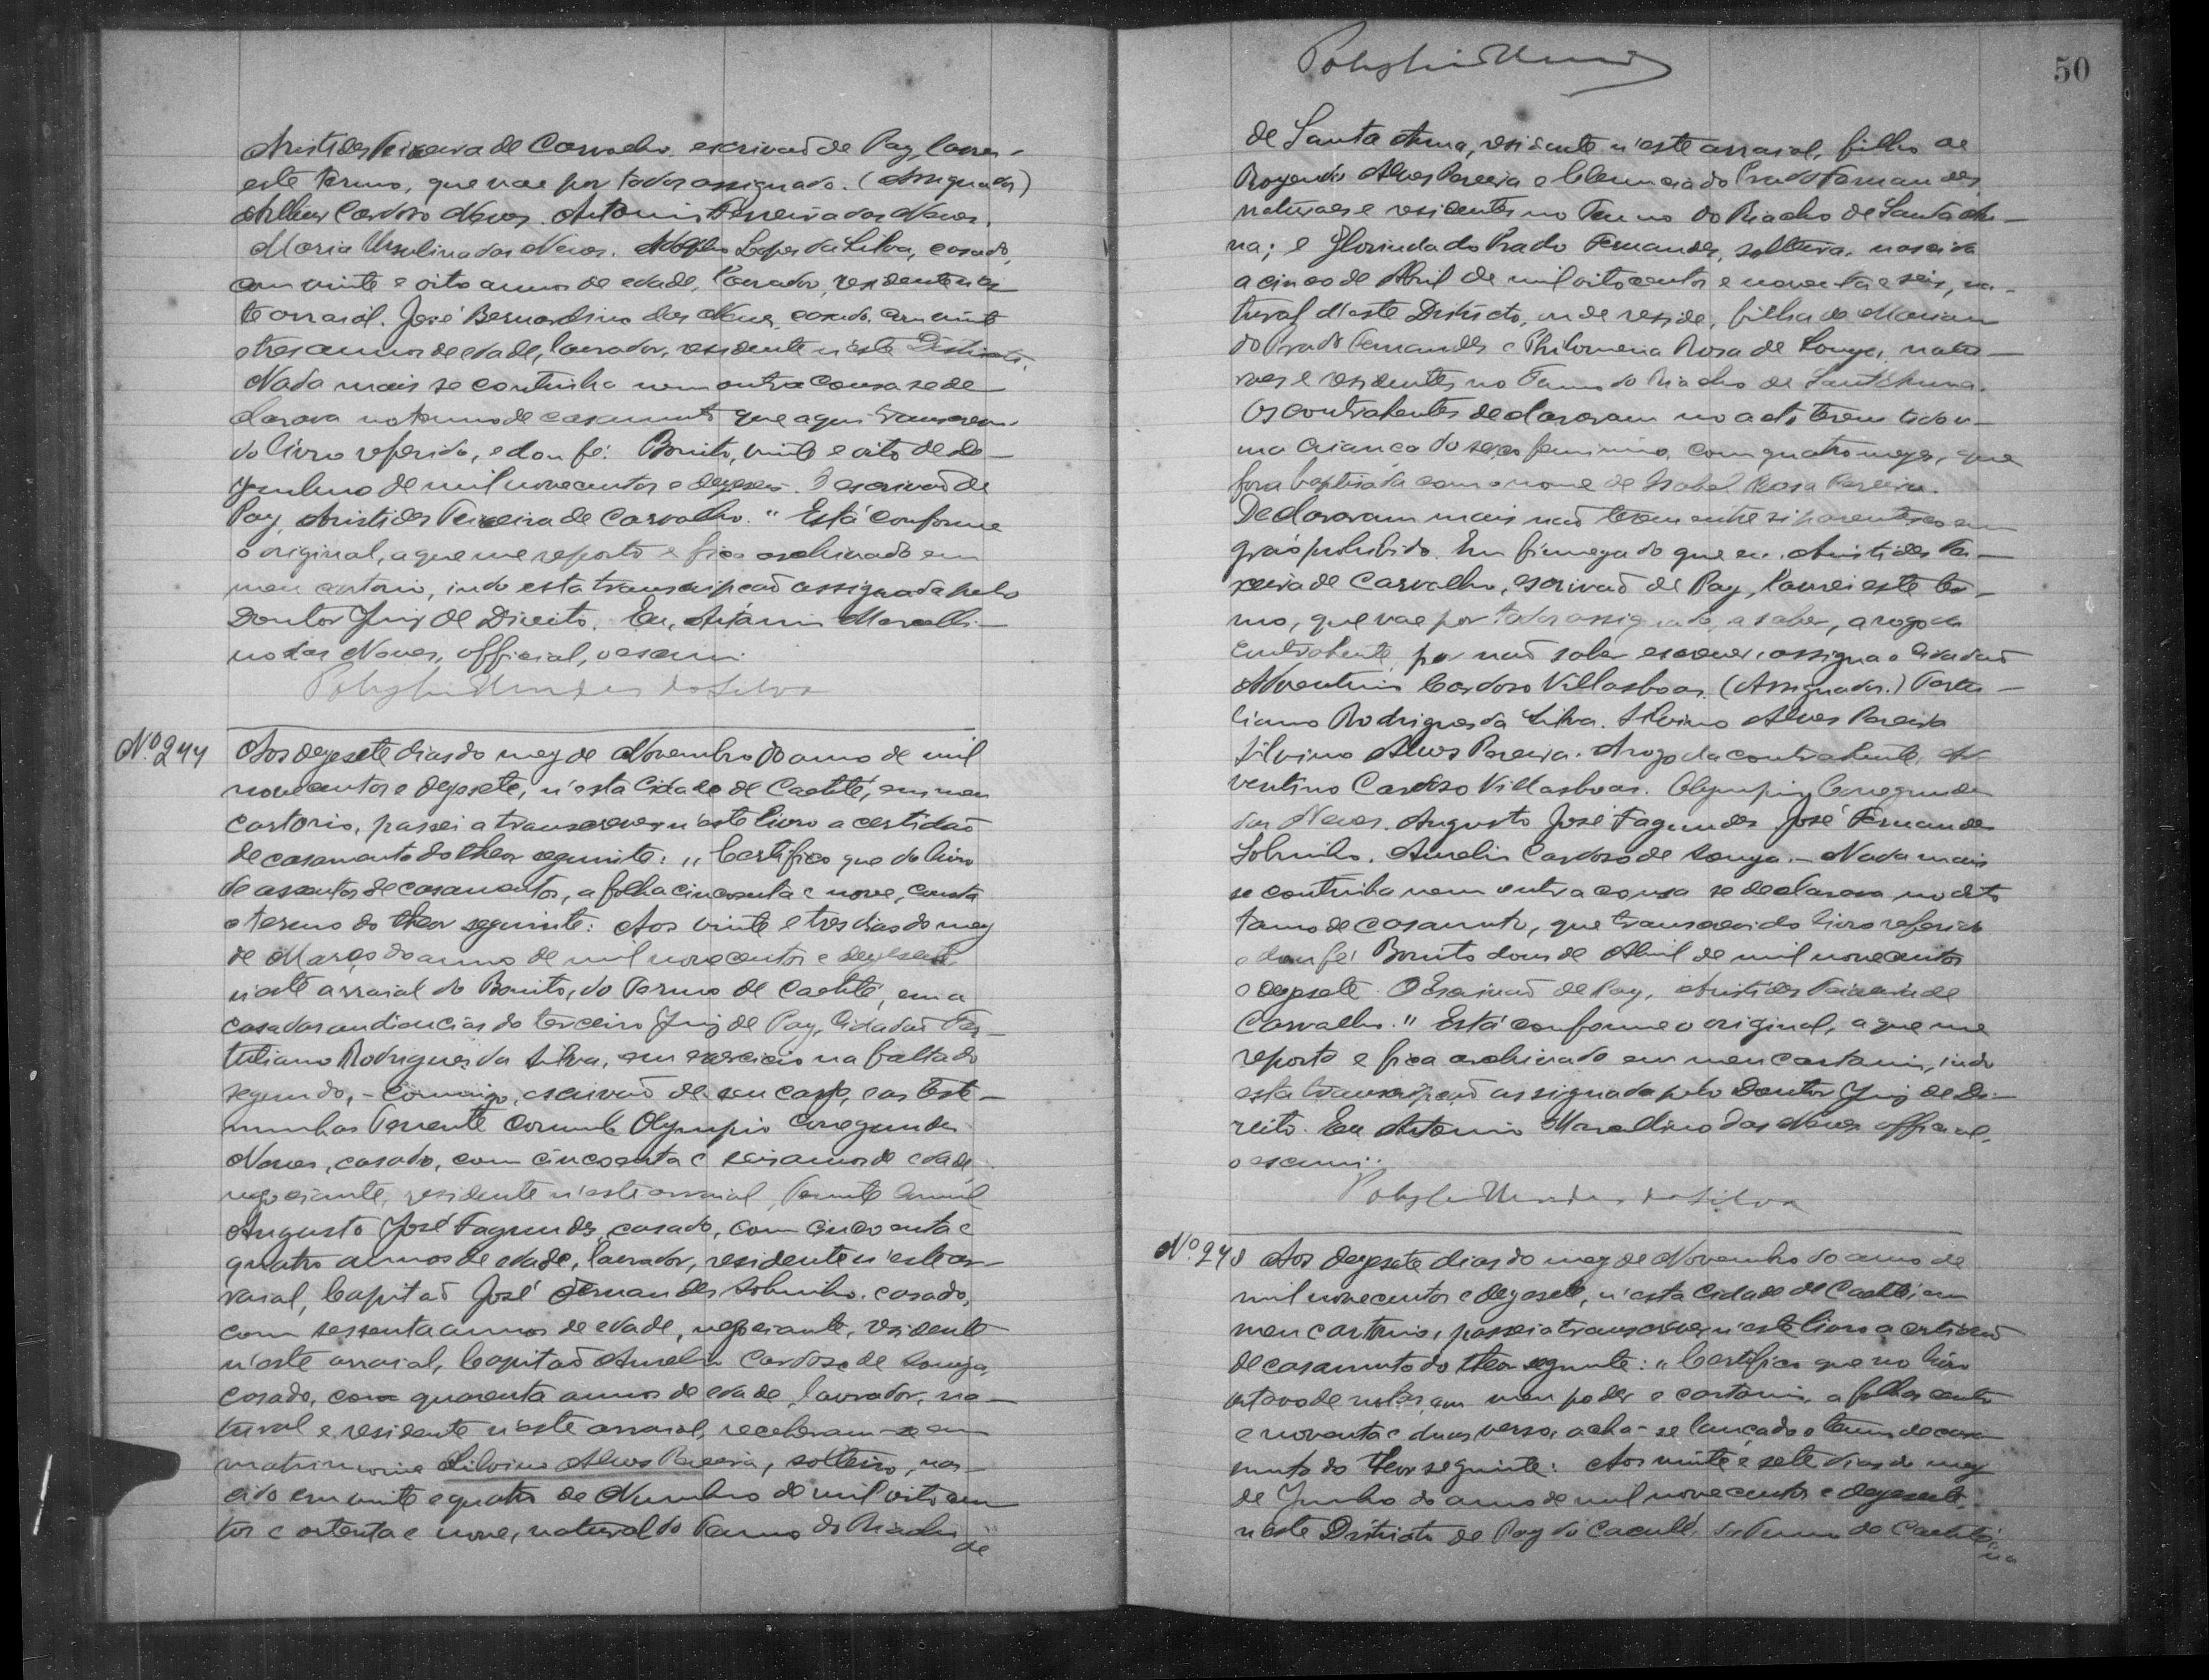 Aristides Teixeira de Carvalho, escrivaõ de Paz, lavrei
este termo, que vae por todos assignado. (Assignados)
Cardoso Neves. Antonio Ferreira das Neves.
Maria Ursulina das Neves. Adolpho Lopes da Silva, casado,
com vinte e oito annos de edade, lavrador, residente nes-
te arraial. José Bernardino das Neves, casado, com vinte
e tres annos de edade, lavrador, residente n'este Districto.
Nada mais se continha nem outra cousa se de-
clarava no termo de casamento que aqui transcrevi
do livro referido, e dou fé. Bonito, vinte e oito de De-
zembro de mil novecentos e dezeseis. O escrivaõ de
Paz, Aristides Teixeira de Carvalho." Está conforme
o original, a que me reporto e fica archivado em
meu cartorio, indo esta transcripçaõ assignada pelo
Doutor Juiz de Direito. Eu, Antonio Marcelli-
no das Neves, official, o escrevi.
Mendes da Silva
Nº 244 Aos dezesete dias do mez de Novembro do anno de mil
novecentos e dezesete, n'esta Cidade de Caetité, em meu
cartorio, passei a transcrever n'este livro a certidaõ
de casamento do theor seguinte: "Certifico que do livro
de assentos de casamentos, a folha cincoenta e nove, consta
o termo do theor seguinte: Aos vinte e tres dias do mez
de Março do anno de mil novecentos e dezesete
n'este arraial do Bonito, do Termo de Caetité, em a
casa das audiencias do terceiro Juiz de Paz, Cidadaõ Ter-
tuliano Rodrigues da Silva, em exercicio na falta do
segundo, - commigo, escrivaõ de seu cargo, e as teste-
munhas Tenente Coronel Olympio Conegundes
Neves, casado, com cincoenta e seis annos de edade,
negociante, residente n'este arraial, Tenente Coronel
Augusto José Fagundes, casado, com cincoenta e
quatro annos de edade, lavrador, residente n'este ar-
raial, Capitaõ José Fernandes Sobrinho, casado,
com sessenta annos de edade, negociante, residente
n'este arraial, Capitaõ Aurelio Cardoso de Souza,
casado, com quarenta annos de edade, lavrador, na-
tural e residente n'este arraial, receberam-se em
matrimonio Silvino Alves Pereira, solteiro, nas-
cido em vinte e quatro de Novembro de mil oitocen-
tos e oitenta e nove, natural do Termo do Riacho
de
50
de Santa Anna, residente n'este arraial, filho de
Alves Pereira e Clemencia do Prado Fernandes,
naturaes e residentes no Termo do Riacho de Santa An-
na; e Florinda do Prado Fernandes, solteira, nascida
a cinco de Abril de mil oitocentos e noventa e seis, na-
tural d'este Districto, onde reside, filha de
do Prado Fernandes e Philomena Rosa de Souza, natu-
raes e residentes no Termo do Riacho de Sant'Anna.
Os contrahentes declararam no acto terem tido u-
ma criança do sexo feminino, com quatro mezes, que
fora baptisada com o nome de Isabel Rosa Pereira.
Declararam mais naõ terem entre si parentesco em
gráo prohibido. Em firmeza do que eu, Aristides Tei-
xeira de Carvalho, escrivaõ de Paz, lavrei este ter-
mo, que vae por todos assignado, a saber, a rogo da
contrahente, por naõ saber escrever, assigna o Cidadaõ
Aventino Cardoso Villasboas. (Assignados.) Tertu-
liano Rodrigues da Silva. Silvino Alves Pereira
Silvino Alves Pereira. A rogo da contrahente, A-
ventino Cardoso Villasboas. Olympio Conegundes
das Neves. Augusto José Fagundes. José Fernandes
Sobrinho. Aurelio Cardoso de Souza. - Nada mais
se continha nem outra cousa se declarava no dito
termo de casamento, que transcrevi do livro referido
e dou fé. Bonito dous de Abril de mil novecentos
e dezesete. O Escrivaõ de Paz, Aristides Teixeira de
Carvalho." Está conforme o original, a que me
reporto e fica archivado em meu cartorio, indo
esta transcripçaõ assignada pelo Doutor Juiz de Di-
reito. Eu Antonio Marcellino das Neves, official,
o escrevi.
Mendes da Silva
Aos dezesete dias do mez de Novembro do anno de
mil novecentos e dezesete, n'esta Cidade de Caetité, em
meu cartorio, passei a transcrever n'este livro a certidaõ
de casamento do theor seguinte: "Certifico que no livro
oitavo de notas, em meu poder e cartorio, a folhas cento
e noventa e duas verso, acha-se lançado o termo de casa-
mento do theor seguinte: Aos vinte e sete dias do mez
de Junho do anno de mil novecentos e dezesete,
n'este Districto de Paz do Caculé, do Termo de Caetité,
na